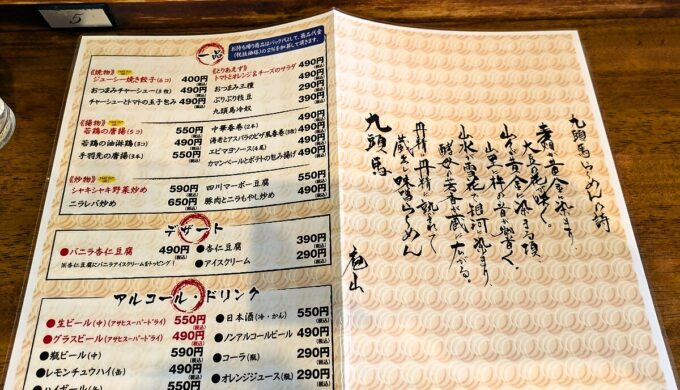 5
一品
お持ち帰り商品はパック代として、商品代金
(税抜価格)の2%を加算して頂きます。
《焼物》
ジューシー焼き餃子(6コ) 400円(税込)
おつまみチャーシュー(3枚) 490円(税込)
チャーシューとトマトの玉子包み 490円(税込)
《とりあえず》
トマトとオレンジ&チーズのサラダ 490円(税込)
おつまみ三種 490円(税込)
ぷりぷり枝豆 290円(税込)
九頭馬冷奴 390円(税込)
《揚物》
若鶏の唐揚(5コ) 550円(税込)
若鶏の油淋鶏(5コ) 490円(税込)
手羽先の唐揚(3本) 550円(税込)
中華春巻(2本) 490円(税込)
海老とアスパラのピザ風春巻(3本) 490円(税込)
エビマヨソース(4尾) 490円(税込)
カマンベールとポテトの包み揚げ 490円(税込)
《炒物》
シャキシャキ野菜炒め 590円(税込)
ニラレバ炒め 650円(税込)
四川マーボー豆腐 550円(税込)
豚肉とニラもやし炒め 490円(税込)
デザート
●バニラ杏仁豆腐 490円(税込)
※杏仁豆腐にバニラアイスクリームをトッピング!
●杏仁豆腐 390円(税込)
●アイスクリーム 290円(税込)
アルコール・ドリンク
●生ビール(中)(アサヒスーパードライ) 550円(税込)
●グラスビール(アサヒスーパードライ) 490円(税込)
●瓶ビール(中) 590円(税込)
●レモンチュウハイ(缶) 490円(税込)
ハイボール(缶) 550円
●日本酒(冷・かん) 550円(税込)
●ノンアルコールビール 490円(税込)
●コーラ(瓶) 290円(税込)
●オレンジジュース(瓶) 290円(税込)
九頭馬らーめんの詩
黄金に染まり
大豆の花が咲く。
山々が黄金に染まる頃
山里に杵の音が響く。
山水が雪花で銀河に染まり、
酵母の芳香が蔵に広がる。
丹精に丹精に熟されて
蔵出し味噌らーめん
九頭馬
庵山